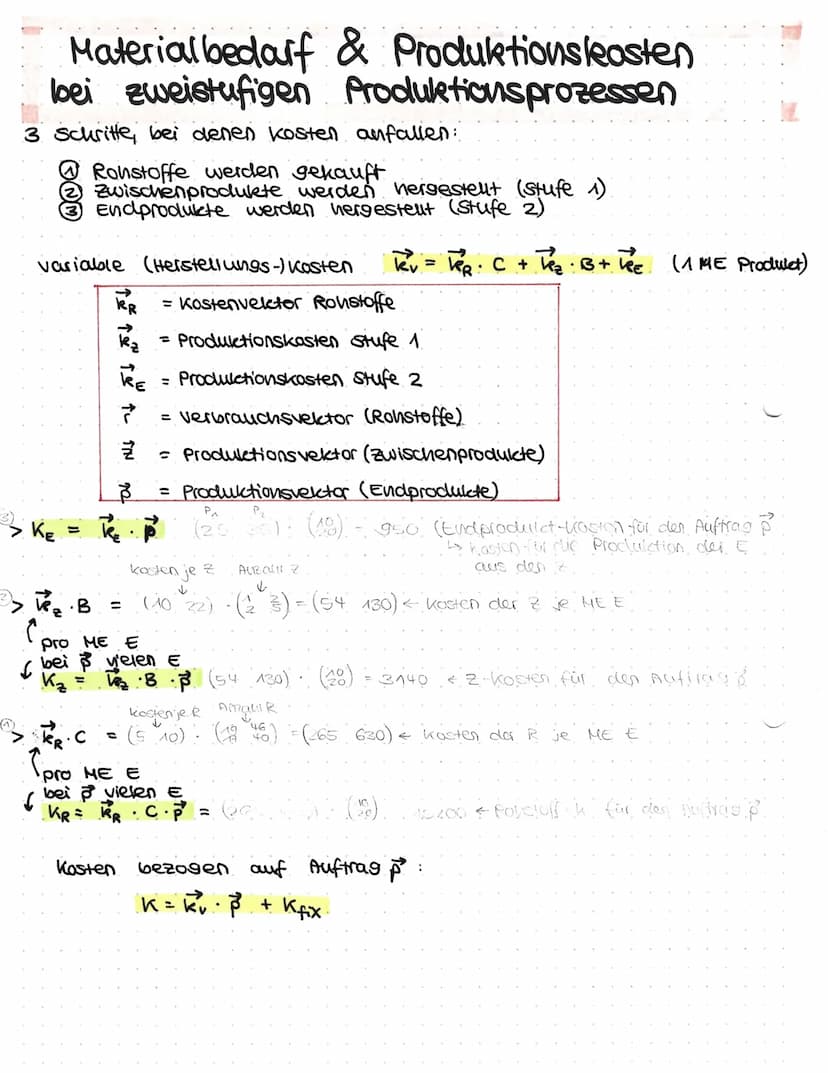 Materialbedarf & Produktionskosten
bei zweistufigen Produktionsprozessen
3 Schritte, bei denen Kosten anfallen:
① Rohstoffe werden gekauft
② Zwischenprodukte werden hergestellt (Stufe 1)
③ Endprodukte werden hergestellt (Stufe 2)
variable (Herstellungs-)Kosten k⃗v = k⃗R · C + k⃗z · B + k⃗E (1 ME Produkt)
k⃗R = Kostenvektor Rohstoffe
k⃗z = Produktionskosten Stufe 1
k⃗E = Produktionskosten Stufe 2
r⃗ = Verbrauchsvektor (Rohstoffe)
z⃗ = Produktionsvektor (Zwischenprodukte)
p⃗ = Produktionsvektor (Endprodukte)
P₁ P₂
③> KE = k⃗E · p⃗ · (10 20) = 950 (Endprodukt-Kosten für den Auftrag p⃗
↳ Kosten für die Produktion der E
aus den Z
Kosten je Z Anzahl Z
②> k⃗z · B = (10 22) · = (54 130) ← Kosten der Z je ME E
pro ME E
bei p⃗ vielen E
Kz = k⃗z · B · p⃗ (54 130) · (10 20) = 3140 ← Z-Kosten für den Auftrag p⃗
Kosten je R Anzahl R
①> k⃗R · C = (5 10) · = (265 630) ← Kosten der R je ME E
pro ME E
bei p⃗ vielen E
KR = k⃗R · C · p⃗ = (10 20) ← für den Auftrag p⃗
Kosten bezogen auf Auftrag p⃗ :
K = k⃗v · p⃗ + Kfix